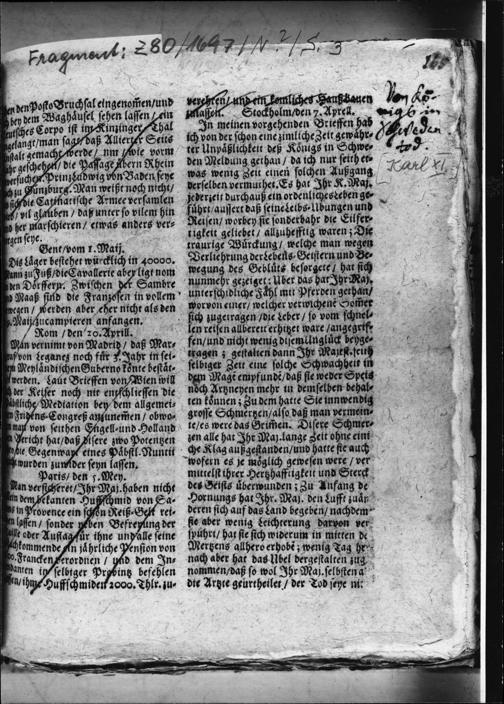 Fragment: Z80/1697/N.2/S. 3
Von Kö-
nigs in
Schweden
tod.
[Karl XI.]
den Posto Bruchsal eingenom̃en/und
bey dem Waghäusel sehen lassen/ ein
Teutsches Corpo ist im Kinzinger Thal
angelangt/man sagt/ daß Alliirter Seits
Anstalt gemacht werde/ nun/ wie vorm
Jahr geschehen/ die Passage übern Rhein
versuchen. Prinz Ludwig von Baden seye
zu Günzburg. Man weißt noch nicht/
die Catinatische Armee versamlen
vil glauben/ daß unter so vilem hin
und her marschieren/ etwas anders ver-
borgen seye.
Gent/ vom 1. Maij.
Dis Läger bestehet würcklich in 40000.
Mann zu Fuß/ die Cavallerie aber ligt noch
in den Dörffern. Zwischen der Sambre
und Maaß sind die Franzosen in vollem
bewegen/ werden aber eher nicht als den
Maij zucampieren anfangen.
Rom/ den 20. Aprill.
Man vernimt von Madrid/ daß Mar-
graf von Leganez noch für 3. Jahr in sei-
nem Meyländischen Guberno könte bestät-
tet werden. Laut Brieffen von Wien will
der Keiser noch nie entschliessen die
Päbstliche Mediation bey dem allgemei-
nen Fridens-Congreß anzunemen/ obwo-
len man von seithen Engell- und Holland
Bericht hat/ daß disere zwo Potentzen
die Gegenwart eines Päbstl. Nuntii
nicht wurden zuwider seyn lassen.
Paris/ den 3. Mey.
Man versicheret/ Ihr Maj. haben nicht
dem bekanten Huffschmid von Sa-
lons in Provence ein schön Reiß-Gelt rei-
chen lassen/ sonder neben Befreyung der
Taille oder Auflag für ihne und alle seine
Nachkommende ein jährliche Pension von
Francken verordnen/ und dem In-
tendanten in selbiger Provintz befehlen
lassen/ ihme Huffschmiden 2000. Thlr. zu-
verehren/ und ein komliches Hauß bauen
zulassen. Stockholm/ den 7. Aprell.
In meinen vorgehenden Brieffen hab
ich von der schon eine zimliche Zeit gewähr-
ter Unpäßlichkeit deß Königs in Schwe-
den Meldung gethan/ da ich nur seith et-
was wenig Zeit einen solchen Außgang
derselben vermuthet. Es hat Ihr K. Maj.
jederzeit durchauß ein ordenliches Leben ge-
führt/ aussert daß seine Leibs-Ubungen und
Reisen/ worbey sie sonderbahr die Eilfer-
tigkeit geliebet/ allzuhefftig waren; Die
traurige Würckung/ welche man wegen
Verliehrung der Lebens-Geistern und Be-
wegung des Geblüts besorgete/ hat sich
nunmehr gezeiget: Uber das hat Ihr Maj.
unterschidliche Fähl mit Pferden gethan/
worvon einer/ welcher verwichene Som̃er
sich zugetragen/ die Leber/ so vom schnel-
len reisen allbereit erhitzet ware/ angegrif-
fen/ und nicht wenig disem Unglück beyge-
tragen; gestalten dann Ihr Majest. seith
selbiger Zeit eine solche Schwachheit in
dem Mage empfunde/ daß sie weder Speis
noch Artzneyen mehr in demselben behal-
ten können; Zu dem hatte Sie innwendig
grosse Schmertzen/ also daß man vermein-
te/ es were das Grim̃en. Disere Schmer-
zen alle hat Ihr Maj. lange Zeit ohne eini-
che Klag außgestanden/ und hatte sie auch
wofern es je möglich gewesen were/ ver-
mittelst ihrer Hertzhafftigkeit und Sterck
des Geists überwunden; Zu Anfang de
Hornungs hat Ihr. Maj. den Lufft zuän-
deren sich auf das Land begeben/ nachdem
sie aber wenig Leichterung darvon ver-
spührt/ hat sie sich widerum in mitten de
Mertzens allhero erhobẽ; wenig Tag hr-
nach aber hat das Ubel dergestalten zuge
nommen/ daß so wol Ihr Maj. selbsten a
die Artzte geurtheilet/ der Tod seye ni-